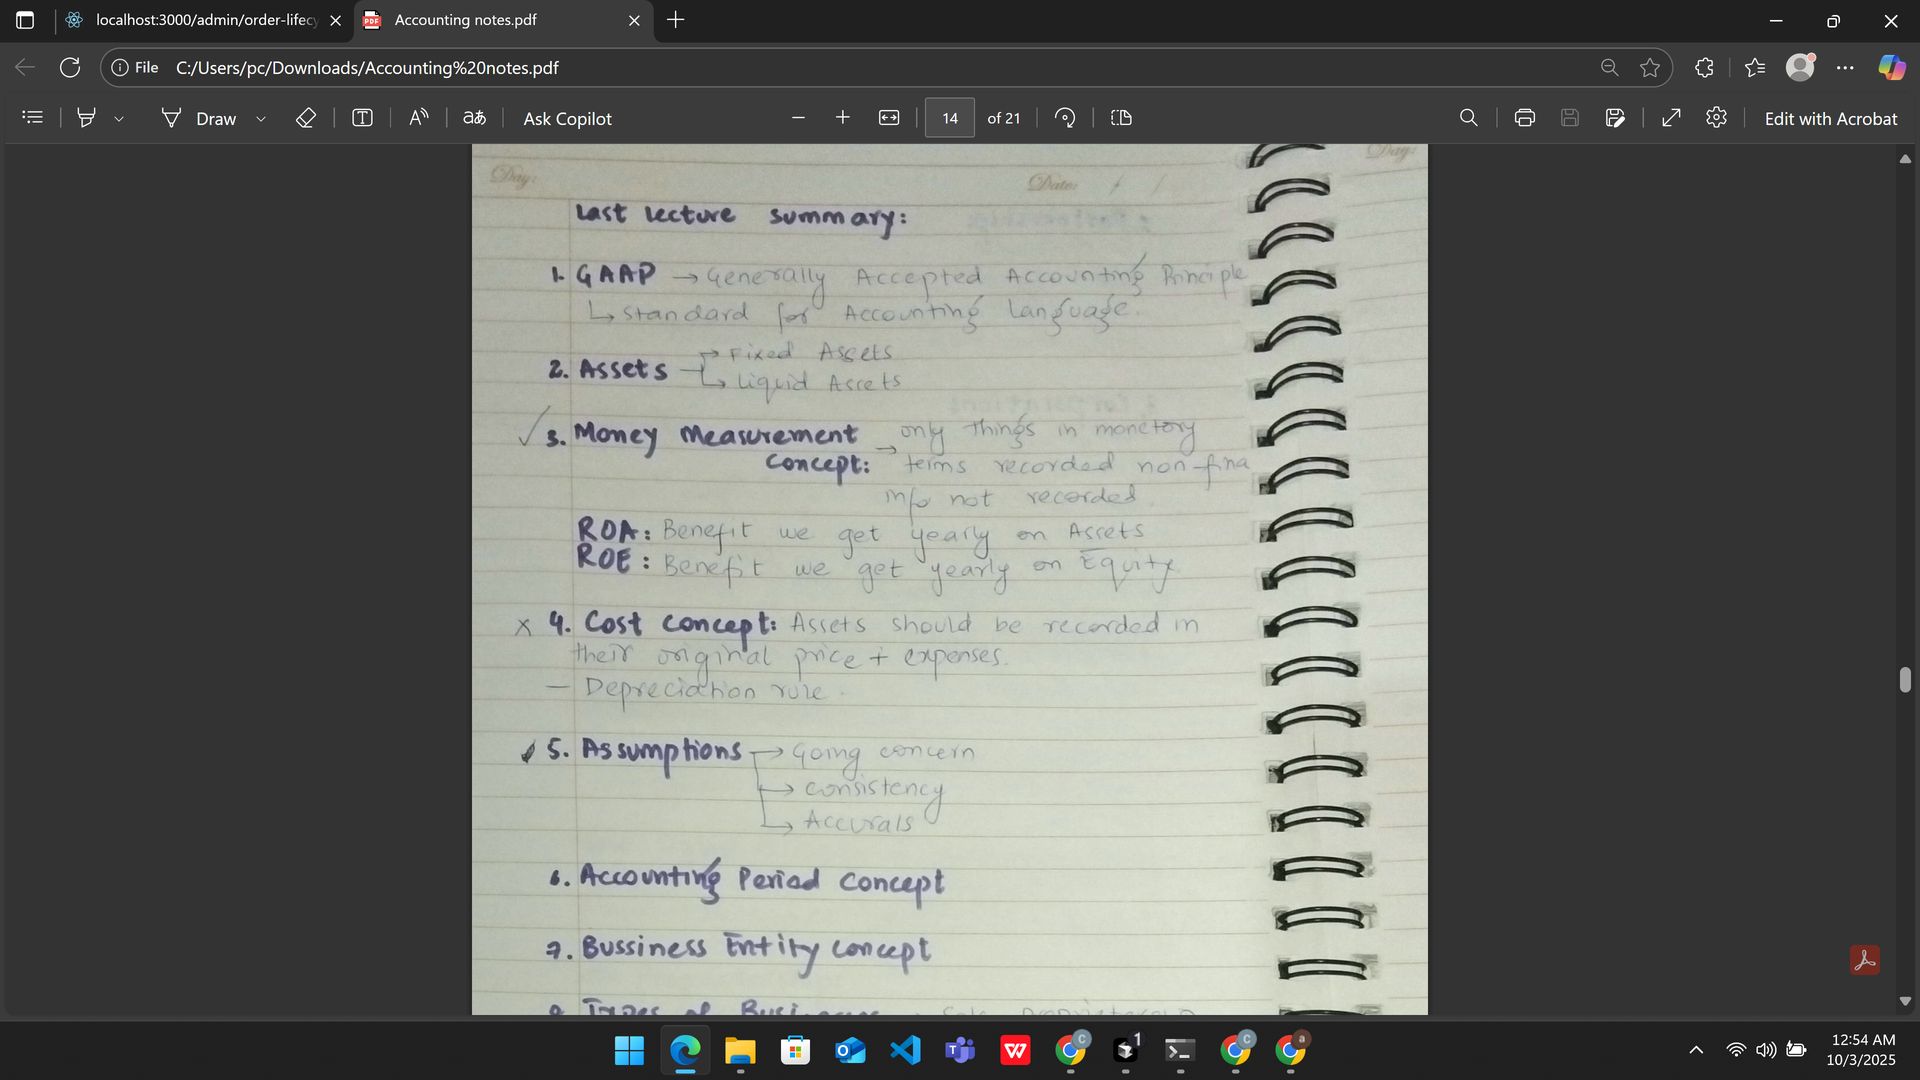 localhost:3000/admin/order-lifecy
Accounting notes.pdf
File C:/Users/pc/Downloads/Accounting%20notes.pdf
Draw aあ Ask Copilot 14 of 21 Edit with Acrobat
Day:
Date: / /
Day:
Last Lecture summary:
1. GAAP → Generally Accepted Accounting Principle
↳ standard for Accounting Language.
2. Assets → Fixed Assets
↳ Liquid Assets
✓ 3. Money Measurement → only things in monetory
Concept: terms recorded non-fina
info not recorded.
ROA: Benefit we get yearly on Assets
ROE: Benefit we get yearly on Equity
x 4. Cost concept: Assets should be recorded in
their original price + expenses.
— Depreciation rule.
5. Assumptions → Going concern
→ consistency
↳ Accurals
6. Accounting Period Concept
7. Bussiness Entity Concept
Types of
12:54 AM
10/3/2025